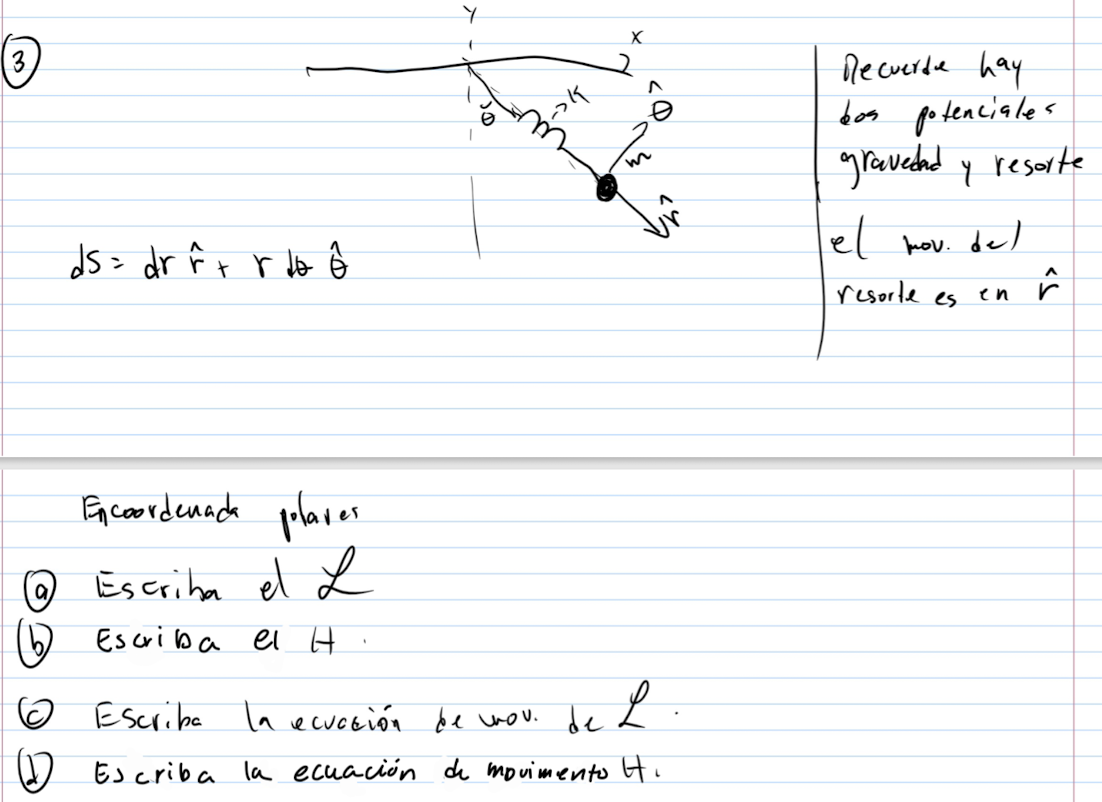 3
Y
x
θ
k
θ̂
m
r̂
ds = dr r̂ + r dθ θ̂
Recuerde hay
dos potenciales
gravedad y resorte
el mov. del
resorte es en r̂
En coordenada polares
a Escriba el ℒ
b Escriba el H.
c Escriba la ecuación de mov. de ℒ.
d Escriba la ecuación de movimento H.